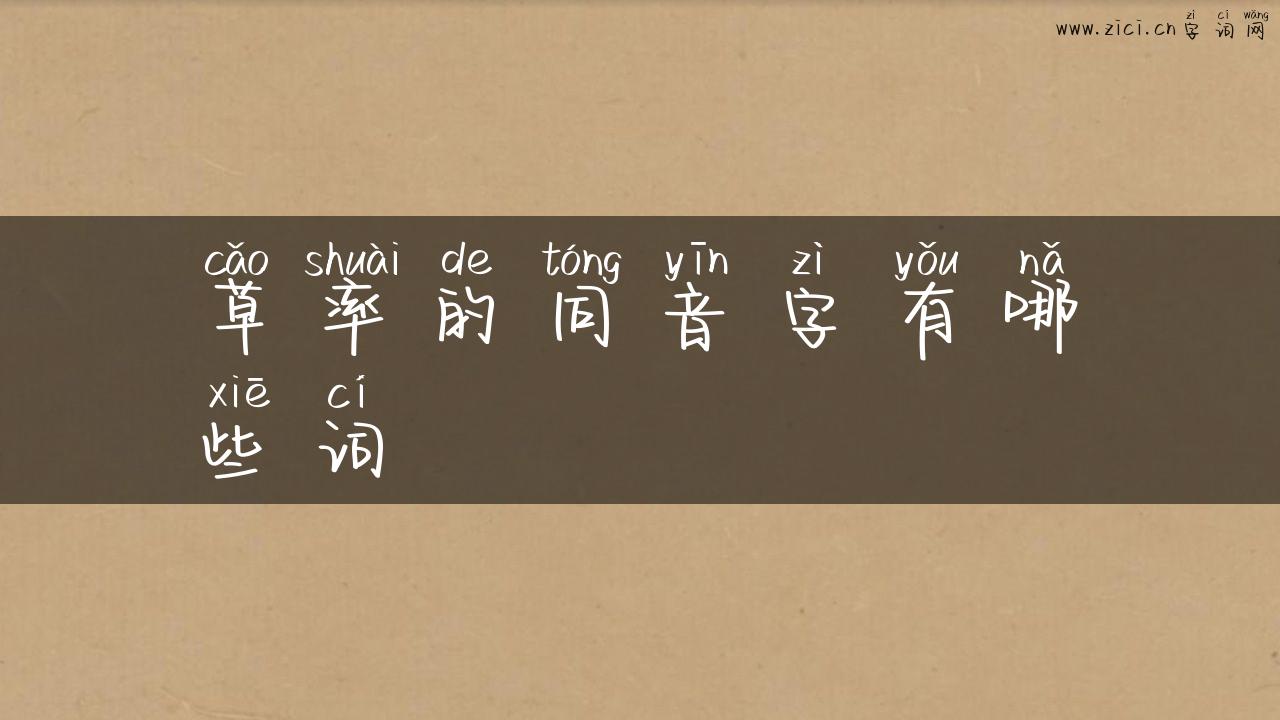 zì cí wǎng
www.zici.cn 字 词 网
cǎo shuài de tóng yīn zì yǒu nǎ
草 率 的 同 音 字 有 哪
xiē cí
些 词